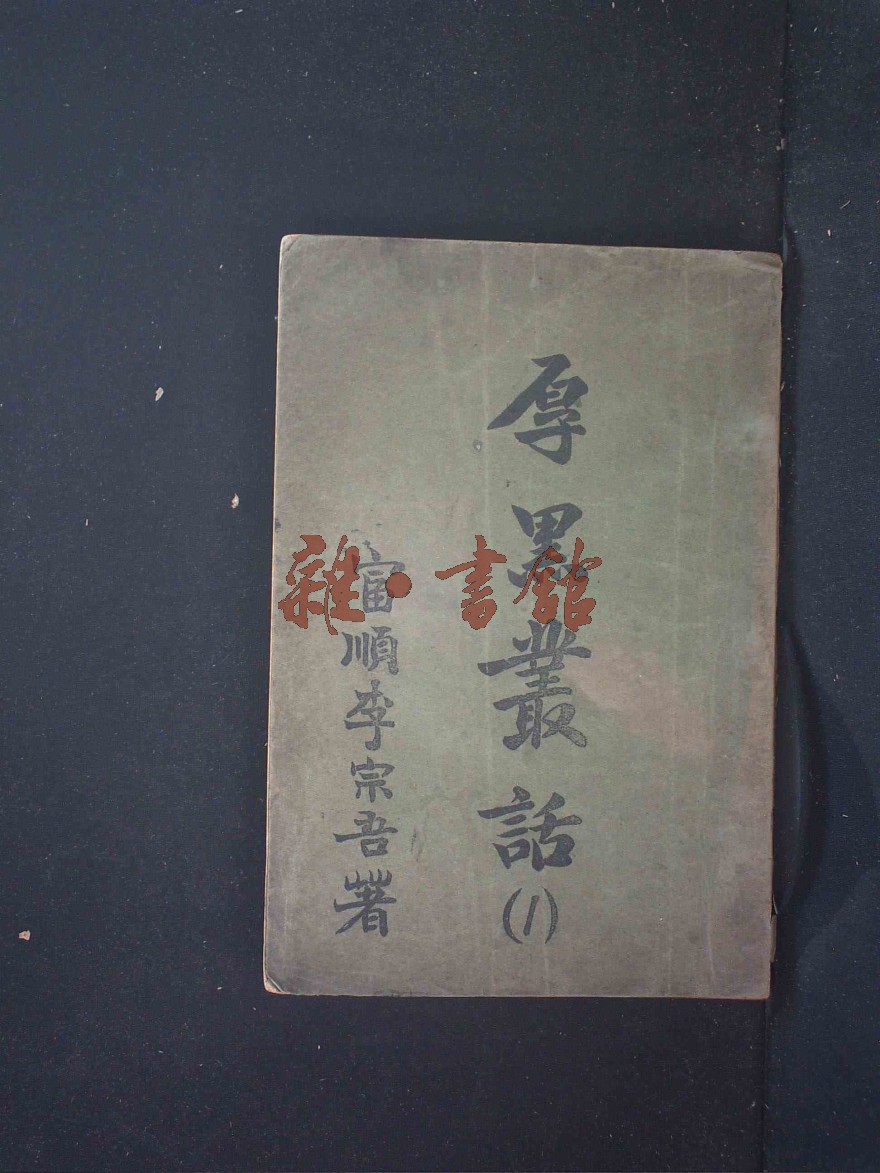 厚黑叢話
(1)
富順李宗吾著
雜·書館